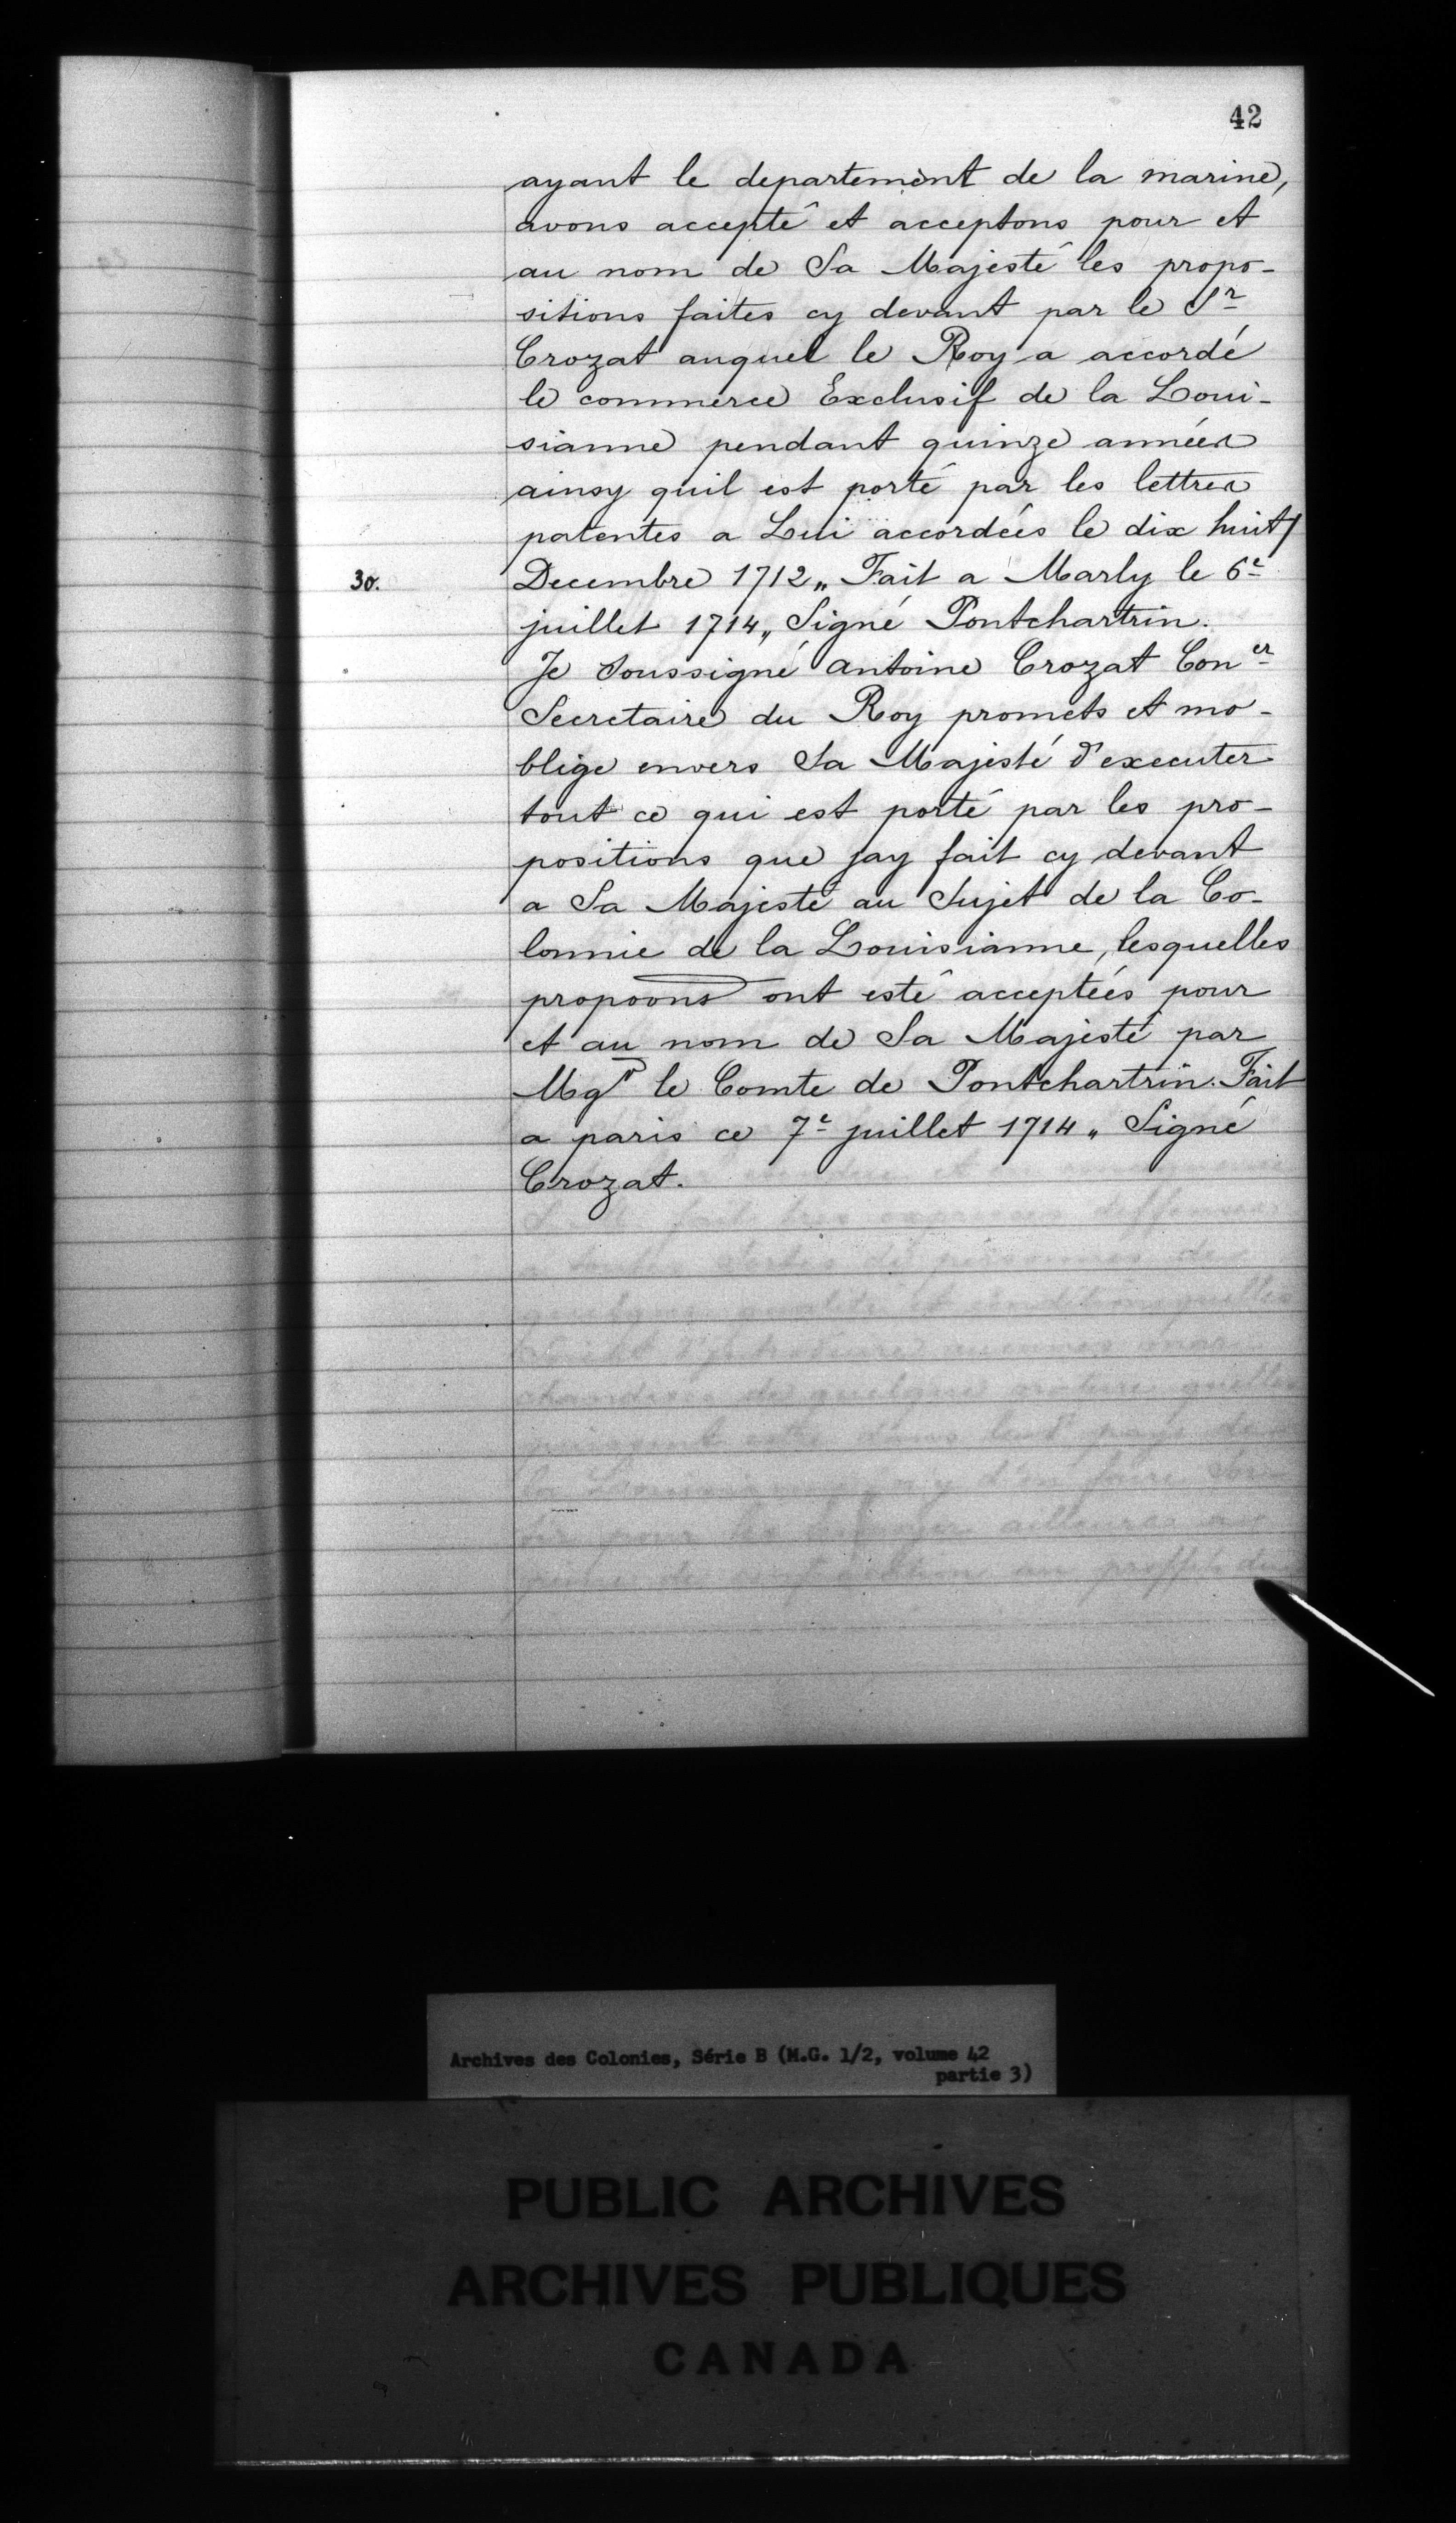 42
ayant le departement de la marine,
avons accepté et acceptons pour et
au nom de Sa Majesté les propo-
sitions faites cy devant par le Sr
Crozat auquel le Roy a accordé
le commerce Exclusif de la Loui-
sianne pendant quinze années
ainsy quil est porté par les lettres
patentes a Lui accordées le dix huit
30.
Decembre 1712„ Fait a Marly le 6e
juillet 1714„ Signé Pontchartrin.
Je Soussigné antoine Crozat Coner
Secretaire du Roy promets et mo-
blige envers Sa Majesté d'executer
tout ce qui est porté par les pro-
positions que jay fait cy devant
a Sa Majesté au Sujet de la Co-
lonnie de la Louisianne, lesquelles
propoons ont esté acceptées pour
et au nom de Sa Majesté par
Mgr le Comte de Pontchartrin. Fait
a paris ce 7e juillet 1714„ Signé
Crozat.
Archives des Colonies, Série B (M.G. 1/2, volume 42
partie 3)
PUBLIC ARCHIVES
ARCHIVES PUBLIQUES
CANADA